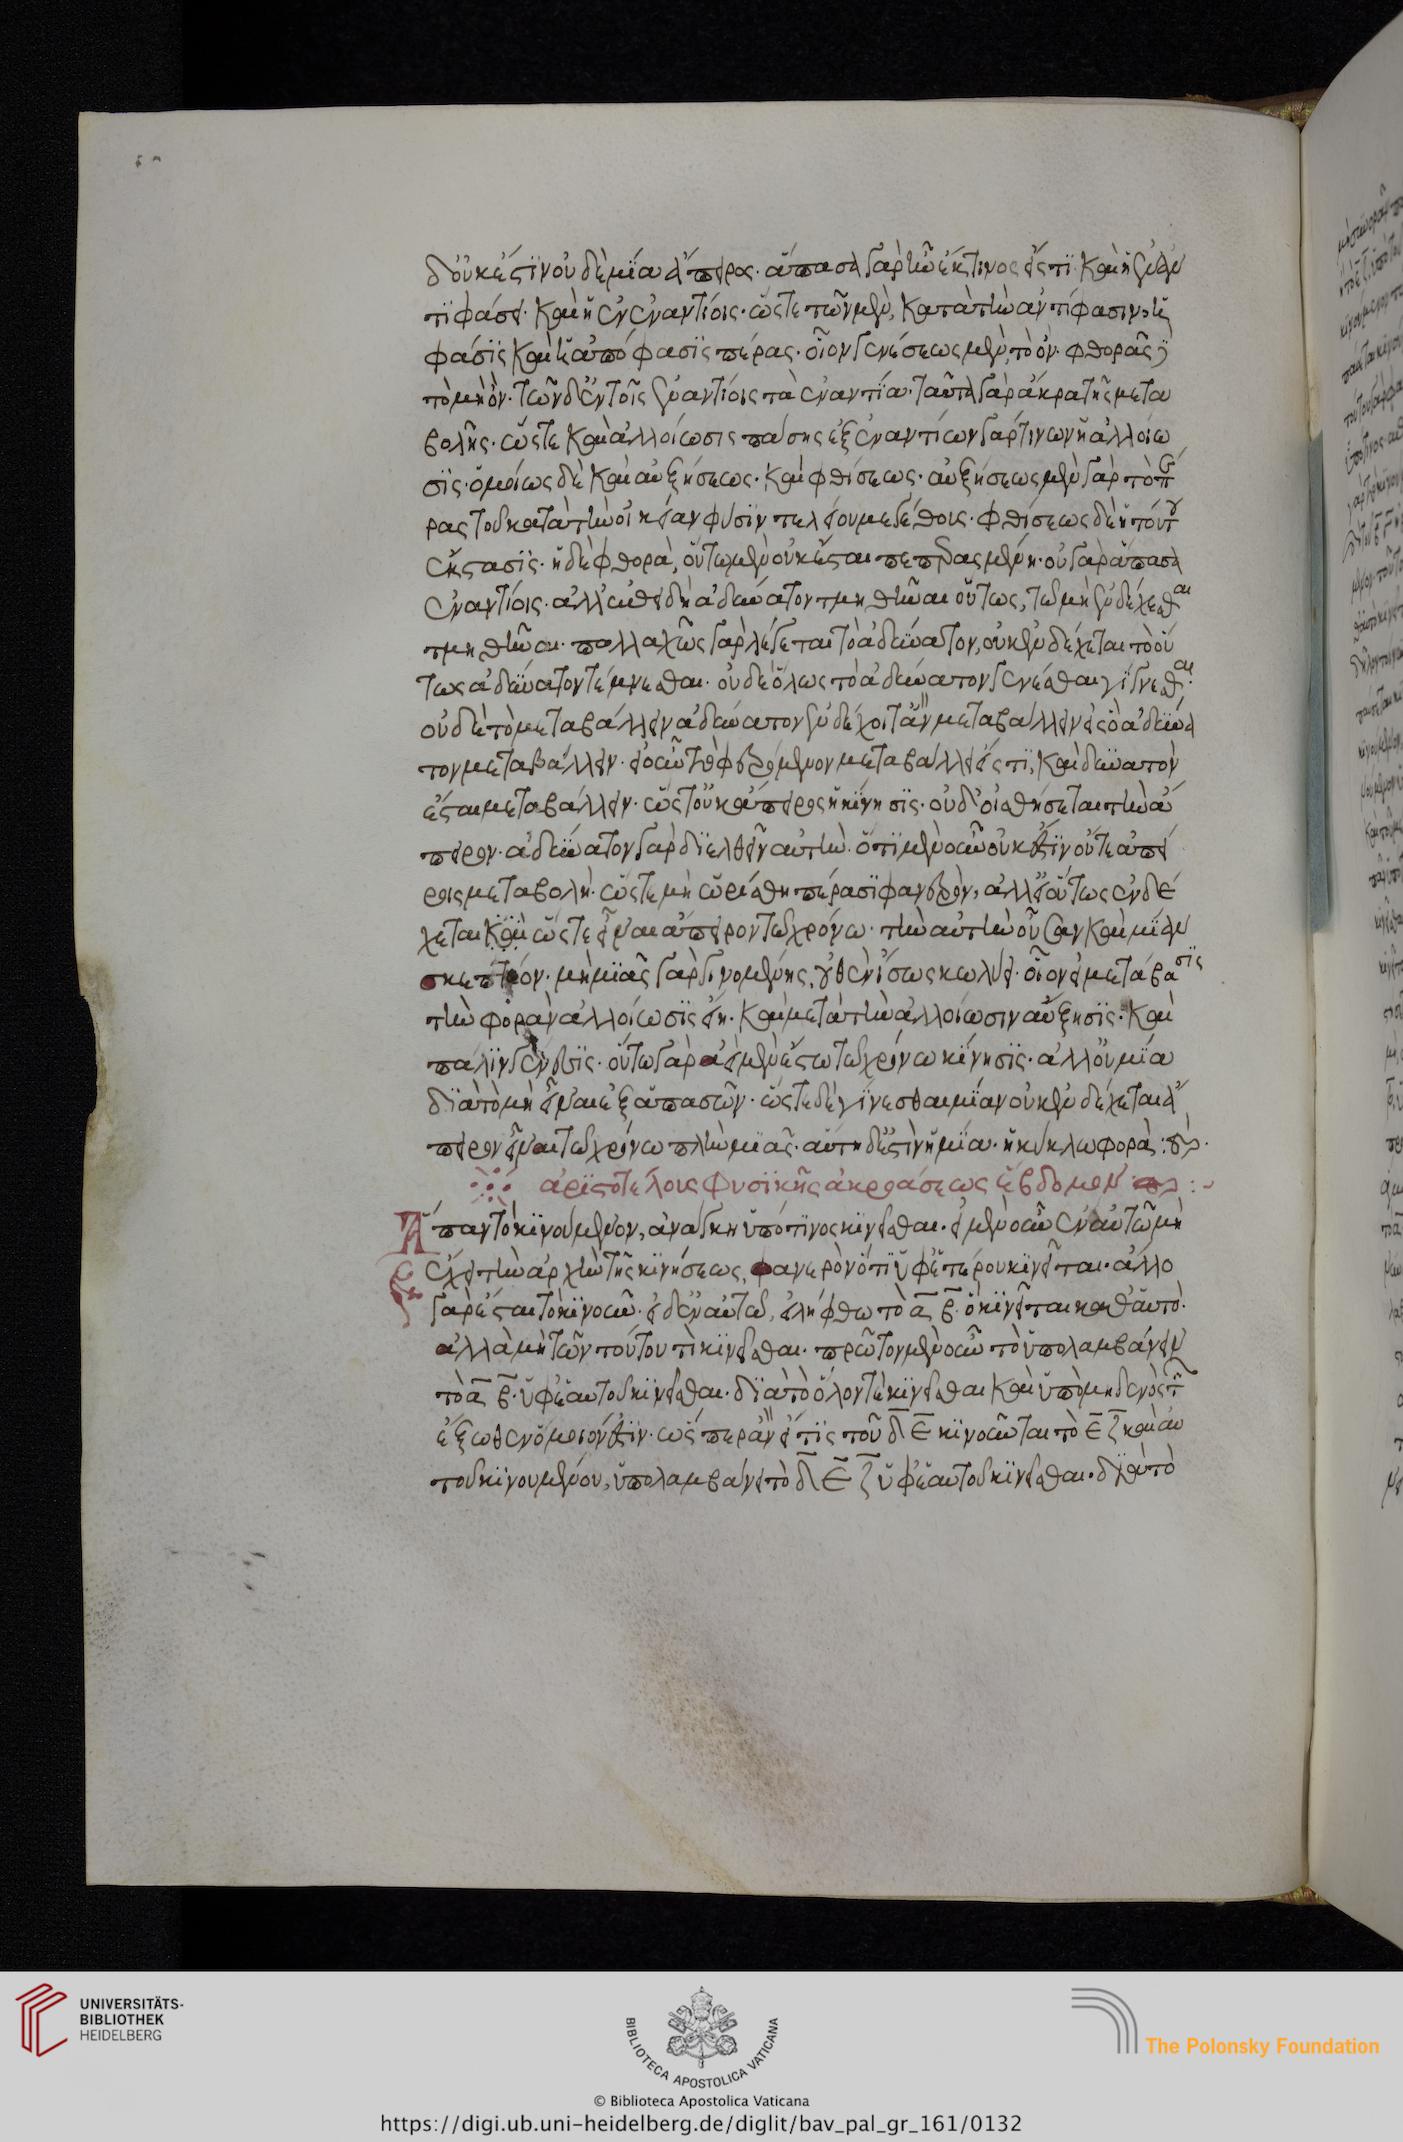 δ' οὐκ ἔστιν οὐδεμία ἄπειρος· ἅπασα γὰρ ἦν ἔκ τινος εἴς τι· καὶ ἡ ἐν ἀν
τιφάσει· καὶ ἡ ἐν ἐναντίοις· ὥστε τῶν μὲν κατὰ τὴν ἀντίφασιν, ἡ
φάσις καὶ ἡ ἀπόφασις πέρας· οἷον γενέσεως μὲν τὸ ὄν· φθορᾶς δὲ
τὸ μὴ ὄν· τῶν δ' ἐν τοῖς ἐναντίοις τὰ ἐναντία· ταῦτα γὰρ ἄκρα τῆς μετα
βολῆς· ὥστε καὶ ἀλλοίωσις πάσης ἐξ ἐναντίων γάρ τινων ἡ ἀλλοίω
σις· ὁμοίως δὲ καὶ αὐξήσεως· καὶ φθίσεως· αὐξήσεως μὲν γὰρ τὸ πέ
ρας τοῦ κατὰ τὴν οἰκείαν φύσιν τελείου μεγέθους· φθίσεως δὲ ἡ τούτου
ἔκστασις· ἡ δὲ φθορὰ, οὕτω μὲν οὐκ ἔσται πεπερασμένη· οὐ γὰρ ἅπασα
ἐναντίοις· ἀλλ' ἐπειδὴ ἀδύνατον τμηθῆναι οὕτως, τῷ μὴ ἐνδέχεσθαι
τμηθῆναι· πολλαχῶς γὰρ λέγεται τὸ ἀδύνατον, οὐκ ἐνδέχεται τὸ οὕ
τως ἀδύνατον τέμνεσθαι· οὐδὲ ὅλως τὸ ἀδύνατον γενέσθαι γίγνεσθαι·
οὐδὲ τὸ μεταβάλλειν ἀδύνατον ἐνδέχοιτ' ἂν μεταβάλλειν εἰς ὃ ἀδύνα
τον μεταβάλλειν· εἰ οὖν τὸ φερόμενον μεταβάλλει εἴς τι, καὶ δυνατὸν
ἔσται μεταβάλλειν· ὥστ' οὐκ ἄπειρος ἡ κίνησις· οὐδ' οἰσθήσεται τὴν ἄ
πειρον· ἀδύνατον γὰρ διελθεῖν αὐτήν· ὅτι μὲν οὖν οὐκ ἔστιν οὕτε ἄπει
ρος μεταβολή· ὥστε μὴ ὡρίσθη πέρασι φανερόν, ἀλλ' εἰ οὕτως ἐνδέ
χεται καὶ ὥστε εἶναι ἄπειρον τῷ χρόνω· τὴν αὐτὴν οὖσαν καὶ μίαν
σκεπτέον· μὴ μιᾶς γὰρ γινομένης, οὐθὲν ἴσως κωλύει· οἷον εἰ μετάβασις
τὴν φορὰν ἀλλοίωσις εἴη· καὶ μετὰ τὴν ἀλλοίωσιν αὔξησις· καὶ
πάλιν γένεσις· οὕτω γὰρ ἀεὶ μὲν ἔστω τῷ χρόνω κίνησις· ἀλλ' οὐ μία
διὰ τὸ μὴ εἶναι ἐξ ἁπασῶν· ὥστε δὲ γίνεσθαι μίαν οὐκ ἐνδέχεται ἄ
πειρον εἶναι τῷ χρόνω πλὴν μιᾶς· αὕτη δ' ἐστὶν ἡ μία· ἡ κύκλω φορά:
ἀριστοτέλους φυσικῆς ἀκροάσεως ἕβδομον:
Ἅπαν τὸ κινούμενον, ἀνάγκη ὑπό τινος κινεῖσθαι· εἰ μὲν οὖν ἐν αὑτῷ μὴ
ἔχει τὴν ἀρχὴν τῆς κινήσεως, φανερὸν ὅτι ὑφ' ἑτέρου κινεῖται· ἄλλο
γὰρ ἔσται τὸ κινοῦν· εἰ δ' ἐν αὑτῷ, εἰλήφθω τὸ α β· ὃ κινεῖται καθ' αὑτὸ·
ἀλλὰ μὴ τῶν τούτου τι κινεῖσθαι· πρῶτον μὲν οὖν τὸ ὑπολαμβάνειν
τὸ α β· ὑφ' ἑαυτοῦ κινεῖσθαι· διὰ τὸ ὅλον τὲ κινεῖσθαι καὶ ὑπὸ μηδενὸς τῶν
ἔξωθεν ὅμοιόν ἐστιν· ὥσπερ ἂν εἴ τις τοῦ δ ε κινοῦνται τὸ ε ζ καὶ αὐ
τοῦ κινουμένου, ὑπολαμβάνει τὸ δ ε ζ ὑφ' ἑαυτοῦ κινεῖσθαι· διὰ τὸ
UNIVERSITÄTS-
BIBLIOTHEK
HEIDELBERG
BIBLIOTECA APOSTOLICA VATICANA
© Biblioteca Apostolica Vaticana
The Polonsky Foundation
https://digi.ub.uni-heidelberg.de/diglit/bav_pal_gr_161/0132